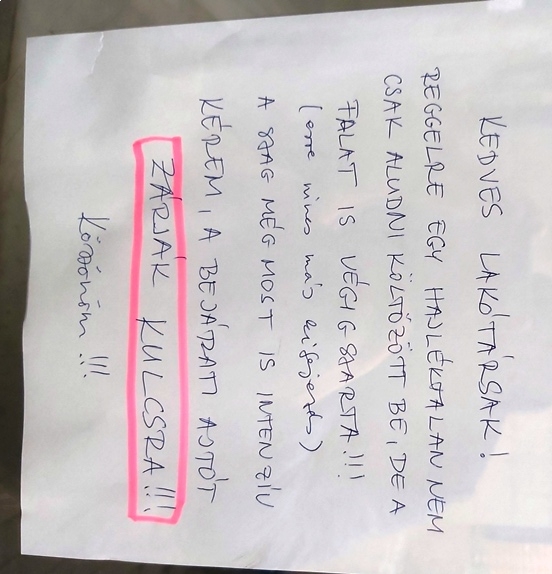 KEDVES LAKÓTÁRSAK!
REGGELRE EGY HAJLÉKTALAN NEM
CSAK ALUDNI KÖLTÖZÖTT BE, DE A
FALAT IS VÉGIG SZARTA!!!
(erre nincs más kifejezés)
A SZAG MÉG MOST IS INTENZÍV
KÉREM, A BEJÁRATI AJTÓT
ZÁRJÁK KULCSRA!!!
Köszönöm!!!